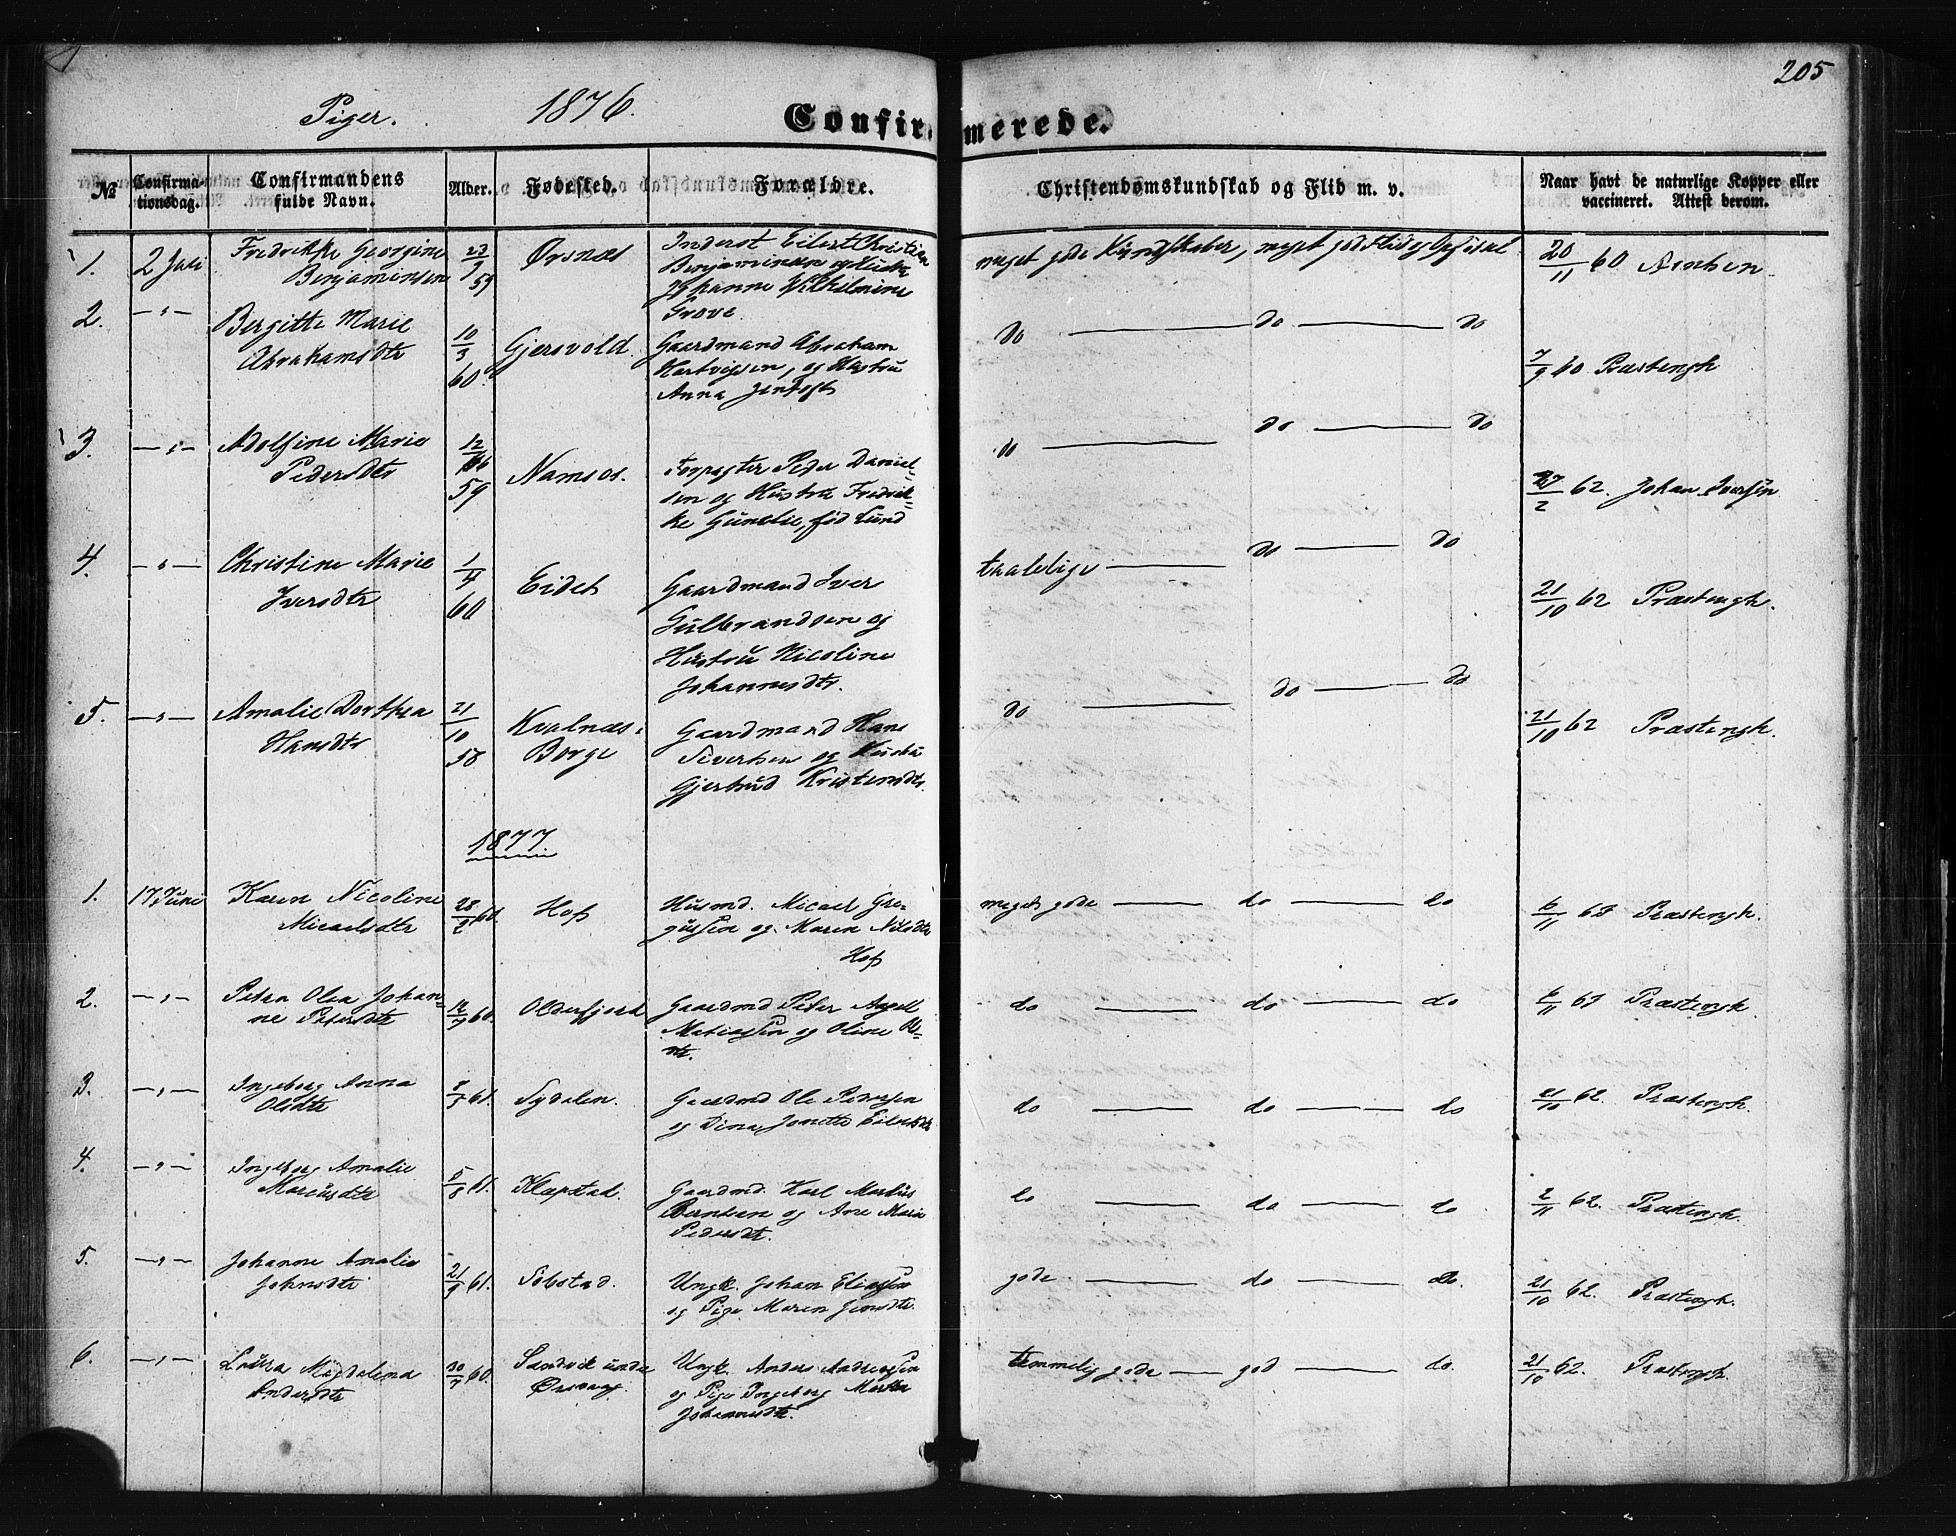 205
Piger. 1876.
Confirmerede.
No
Confirma-
tionsdag.
Confirmandens
fulde Navn.
Alder.
Fødested.
Forældre.
Christendomskundskab og Flid m. v.
Naar havt de naturlige Kopper eller
vaccineret. Attest derom.
1. 2 Juli Fredrikke Georgine
Benjaminsen
23/9 59
Ørsnæs
Inderst Eilert Christian
Benjaminsen og Hustru
Johanne Vilhelmine
Grove.
meget gode Kundskaber, meget god Flid og Opførsel
20/11 60
2. — " — Bergitte Marie
Abrahamsdtr
10/3 60.
Gjersvold.
Gaardmand Abraham
Hartvigsen, og Hustru
Anna Jentoft
do — do — do
7/9 60 Præstengh
3. — " — Adolfine Marie
Pedersdtr
12/ 59
Namsos.
Forpagter Peder Daniel-
sen og Hustru Fredrik-
ke Gunelie, fød Lund
do — do — do
27/2 62. Johan Iversen
4. — " — Christine Marie
Iversdtr
1/4 60
Eidet
Gaardmand Iver
Gulbrandsen og
Hustru Nicoline
Johannesdtr.
taalelige — do — do
21/10 62 Præstengh.
5. — " — Amalie Dorthea
Hansdtr
21/10 58
Kvalnæs i
Borge
Gaardmand Hans
Sivertsen og Hustru
Gjertrud Kristensdtr.
do — do — do
21/10 62 Præstengh.
1877
1. 17 Juni Karen Nicoline
Micaelsdtr
28/2 60.
Hof
Husmd. Micael Gre-
gussen og Maren Nilsdtr
Hof
meget gode — do — do
6/11 63 Præstengh.
2. — " — Petra Olea Johan-
ne Petersdtr
12/7 60.
Olderfjord
Gaardmd Peter Angell
Mathiassen og Oline Ols-
dtr.
do — do — do
6/11 63 Præstengh.
3. — " — Ingeborg Anna
Olsdtr
8/5 61.
Sydalen.
Gaardmd Ole Pedersen
og Dina Jonette Eilertsdtr
do — do — do
21/10 62. Præstengh.
4. — " — Ingeborg Amalie
Marcusdtr
5/8 61.
Klepstad.
Gaardmd. Karl Markus
Berntsen og Ane Marie
Pedersdtr.
do — do — do
2/11 62. Præstengh.
5. — " — Johanne Amalie
Johnsdtr
21/9 61.
Sebstad.
Ungk. Johan Eliassen
og Pige Maren Jonsdtr.
gode — do — do.
21/10 62. Præstengh.
6. — " — Laura Magdalena
Andersdtr
30/7 60.
Sandvik under
Ørsvaag.
Ungk. Anders Andreassen
og Pige Ingeborg Martha
Johannesdtr.
temmelig gode — god — do.
21/10 62. Præstengh.